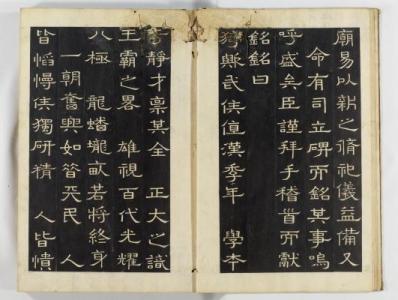 廟易以新之脩祀儀益備又
命有司立碑而銘其事嗚
呼盛矣臣謹拜手稽首而獻
銘銘曰
猗歟武侯值漢季年 學本
靜才稟其全 正大之識
王霸之畧 雄視百代光耀
八極 龍蟠壠畝若將終身
一朝奮興如天民 人
皆慆慢侯獨研精 人皆憒